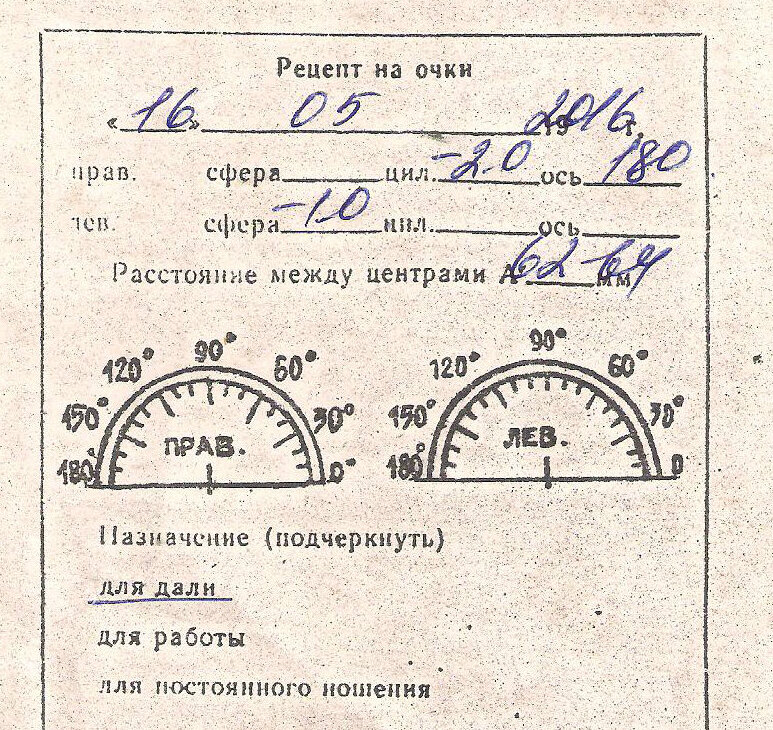 Рецепт на очки
«16» 05 2016 г.
прав. сфера цил. -2.0 ось 180
лев. сфера -1.0 цил. ось
Расстояние между центрами А 62-64 мм
90° 90°
120° 60° 120° 60°
150° 30° 150° 30°
ПРАВ. ЛЕВ.
180° 0° 180° 0
Назначение (подчеркнуть)
для дали
для работы
для постоянного ношения